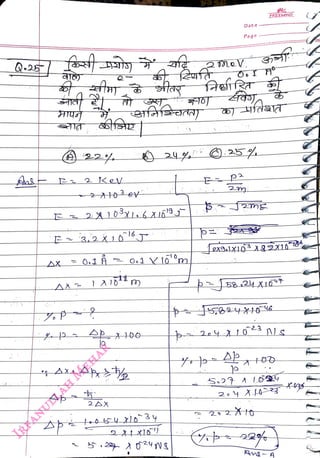 Date
Page
Q.25 किसी प्रयोग में यदि 2 MeV ऊर्जा
वाले e- की स्थिति 0.1 A°
की सीमा के भीतर निर्धारित की
जाती है। तो उस क्षण संवेग के
मापन में अनिश्चितता का प्रतिशत
ज्ञात कीजिए।
(A) 22% (B) 24% (C) 25%
Ans- E = 2 KeV
= 2 × 10³ eV
E = 2 × 10³ × 1.6 × 10⁻¹⁹ J
E = 3.2 × 10⁻¹⁶ J
Δx = 0.1 Å = 0.1 × 10⁻¹⁰ m
Δx = 1 × 10⁻¹¹ m
% p = ?
% p = Δp/p × 100
∵ Δx × Δpx ≥ ħ/2
Δp = ħ/2Δx
Δp = 1.054 × 10⁻³⁴ / 2 × 1 × 10⁻¹¹
= 5.27 × 10⁻²⁴ NS
E = p²/2m
p = √2mE
p =
p = √58.24 × 10⁻⁴⁷
p = √5.824 × 10⁻⁴⁶
p = 2.4 × 10⁻²³ NS
% p = Δp/p × 100
= 5.27 × 10⁻²⁴ / 2.4 × 10⁻²³ × 100
= 2.2 × 10
% p = 22%
Ans-A
IRFANULLAH MEHAR